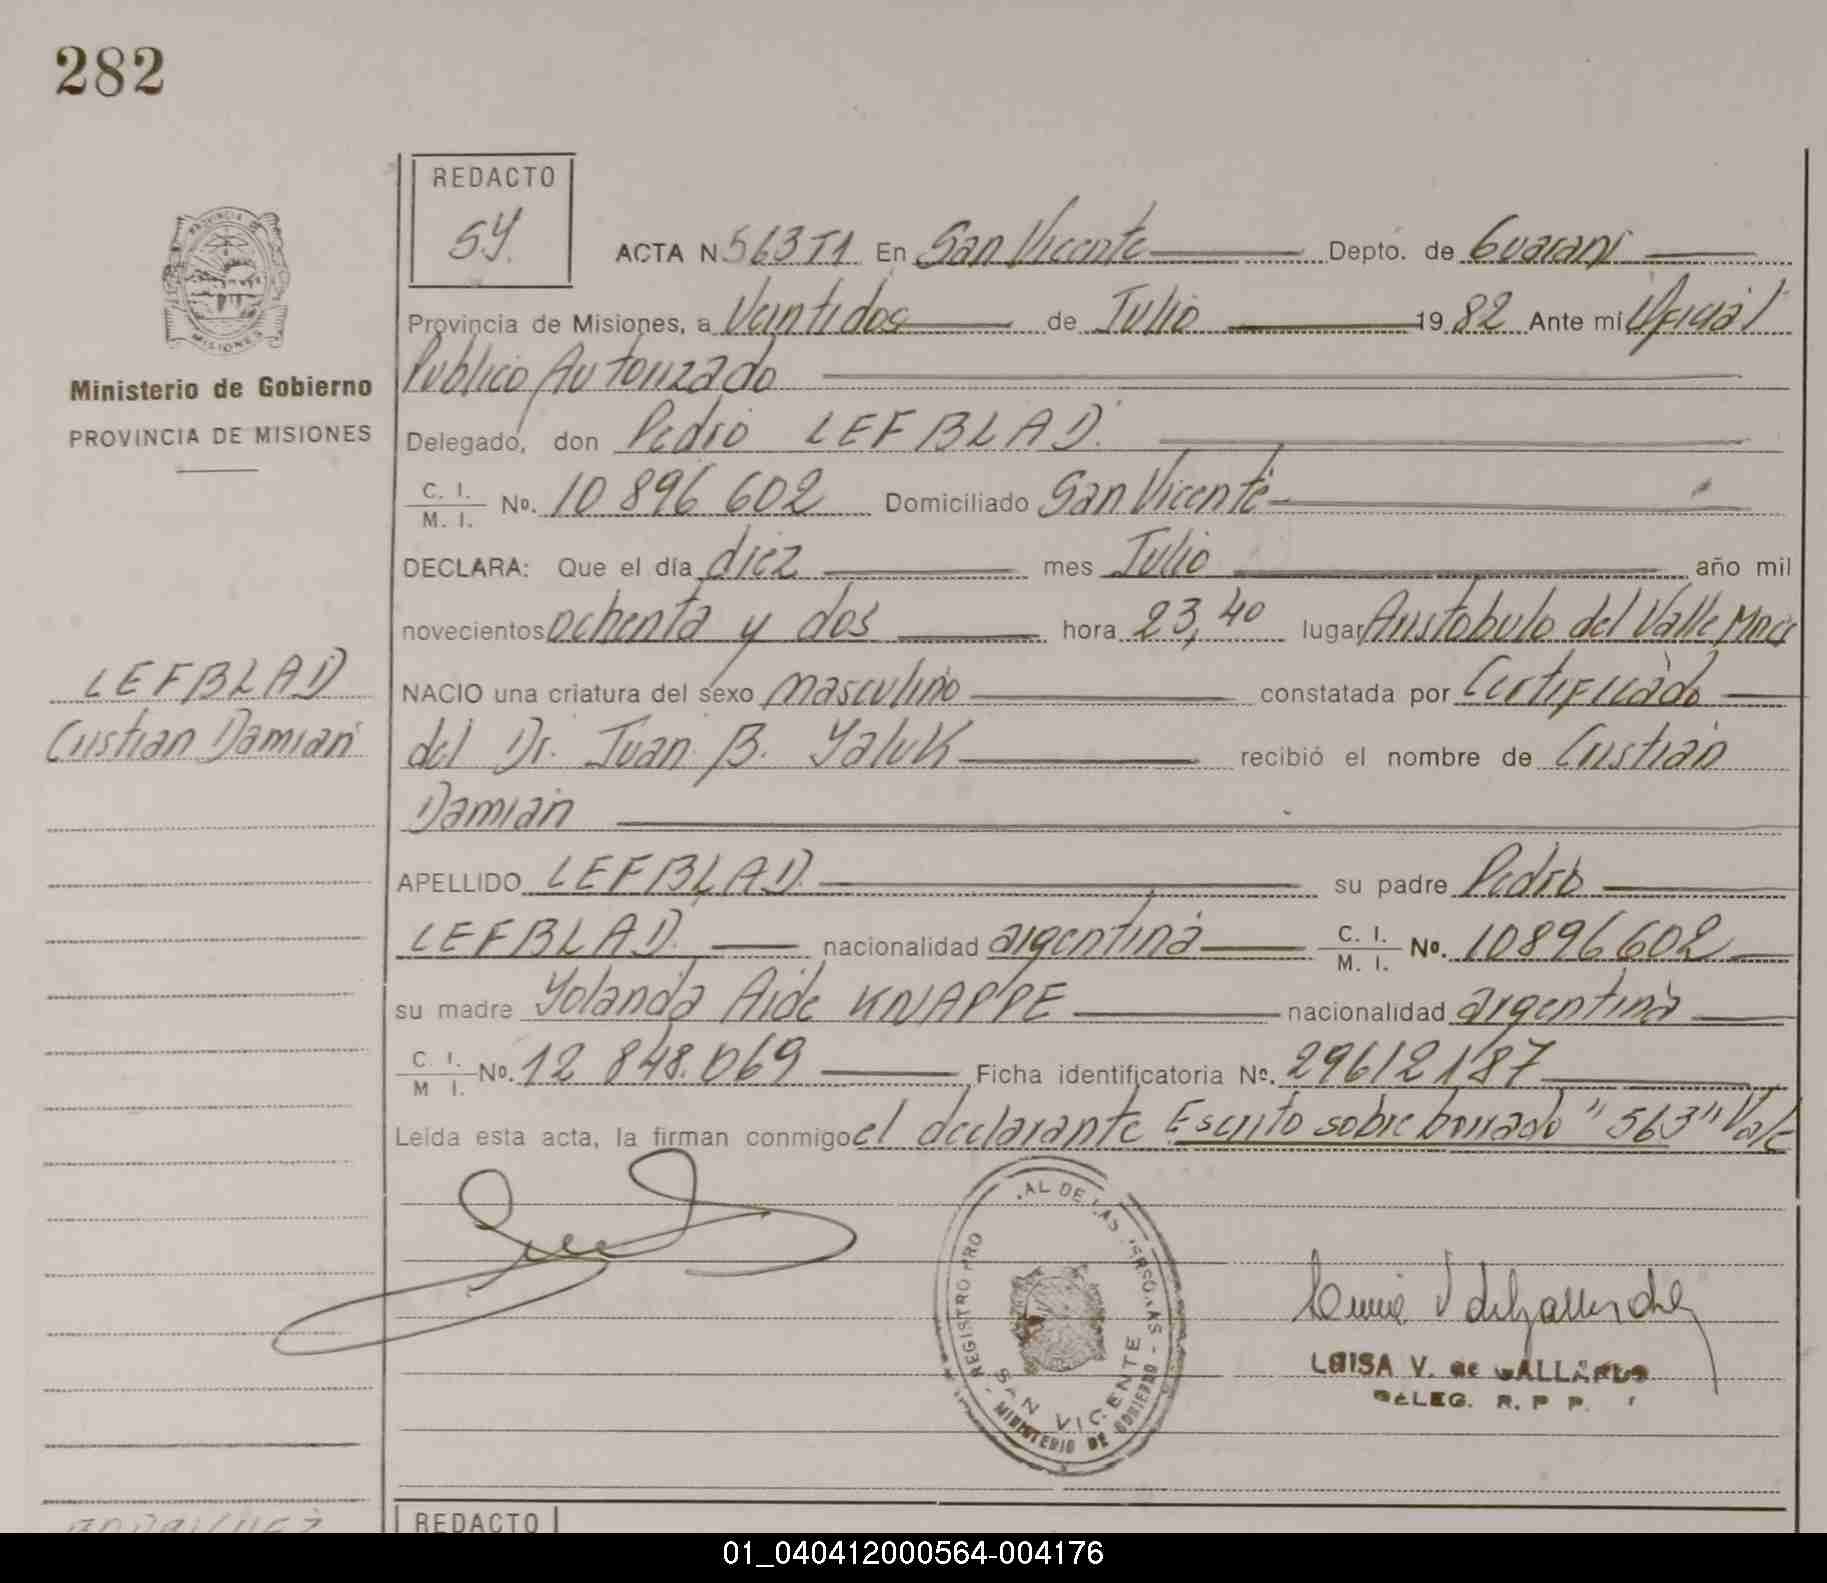 282
REDACTO
SY.
PROVINCIA DE
MISIONES
Ministerio de Gobierno
PROVINCIA DE MISIONES
ACTA N 563 T1 En San Vicente Depto. de Guaraní
Provincia de Misiones, a Veintidos de Julio 1982 Ante mi Oficial
Publico Autorizado
Delegado, don Pedro LEFBLAD.
C. I. / M. I. No. 10 896 602 Domiciliado San Vicente
DECLARA: Que el día diez mes Julio año mil
novecientos ochenta y dos hora 23,40 lugar Aristobulo del Valle Mnes
NACIO una criatura del sexo masculino constatada por Certificado
del Dr. Juan B. Yaluk recibió el nombre de Cristian
Damian
APELLIDO LEFBLAD. su padre Pedro
LEFBLAD. nacionalidad argentina C. I. / M. I. No. 10896602
su madre Yolanda Aide KNAPPE nacionalidad argentina
C. I. / M I. No. 12 848.069 Ficha identificatoria No. 29612187
Leida esta acta, la firman conmigo el declarante Escrito sobre borrado "563" Vale
LEFBLAD
Cristian Damian
REGISTRO PRO AL DE LAS PERSONAS
SAN VICENTE
MINISTERIO DE GOBIERNO
LUISA V. de GALLARDO
DELEG. R. P P.
REDACTO
01_040412000564-004176